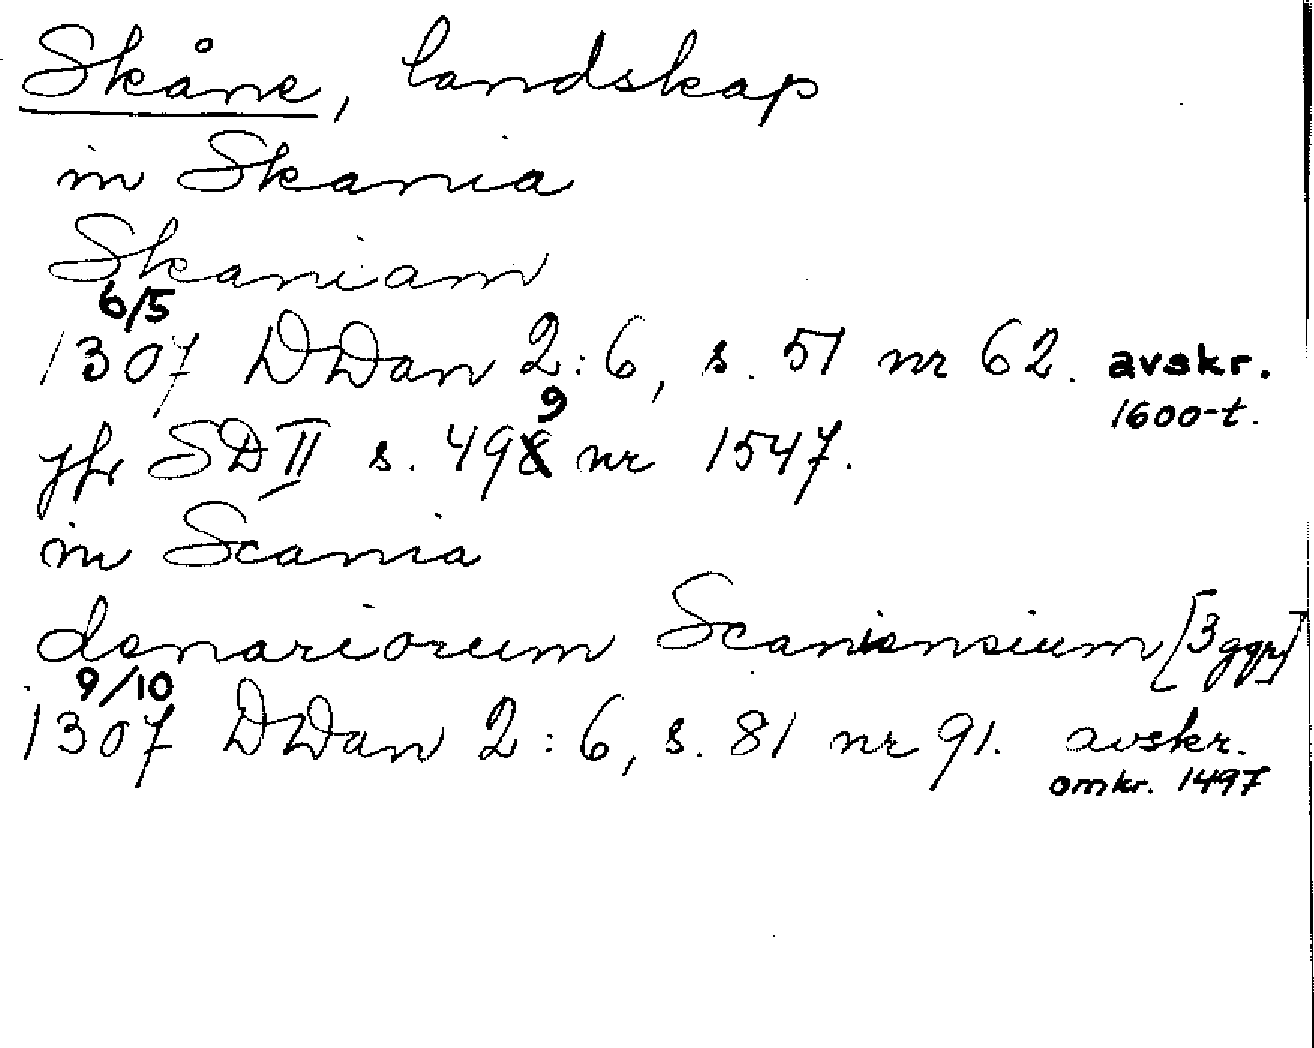 Skåne, landskap
in Skania
Skaniam
6/5
1307 DDan 2:6, s. 51 nr 62. avskr.
1600-t.
9
jfr SD II s. 498 nr 1547.
in Scania
denariorum Scaniensium [3 ggr]
9/10
1307 DDan 2:6, s. 81 nr 91. avskr.
omkr. 1497